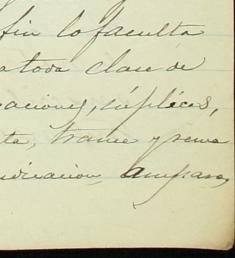 fin lo faculta
a toda clase de
aciones, súplicas,
ta, trance y rema
amparo,